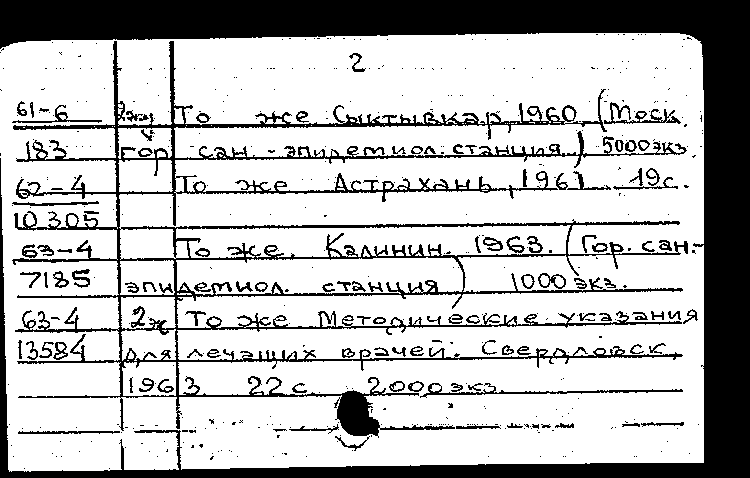 2
61-6 2 экз То же Сыктывкар, 1960 (Моск.
183 гор сан.-эпидемиол. станция) 5000 экз.
62-4 То же Астрахань, 1961 19 с.
10305
63-4 То же. Калинин. 1963. (Гор. сан.-
7185 эпидемиол. станция) 1000 экз.
63-4 2ж То же Методические указания
13584 для лечащих врачей. Свердловск,
1963. 22 с 2000 экз.